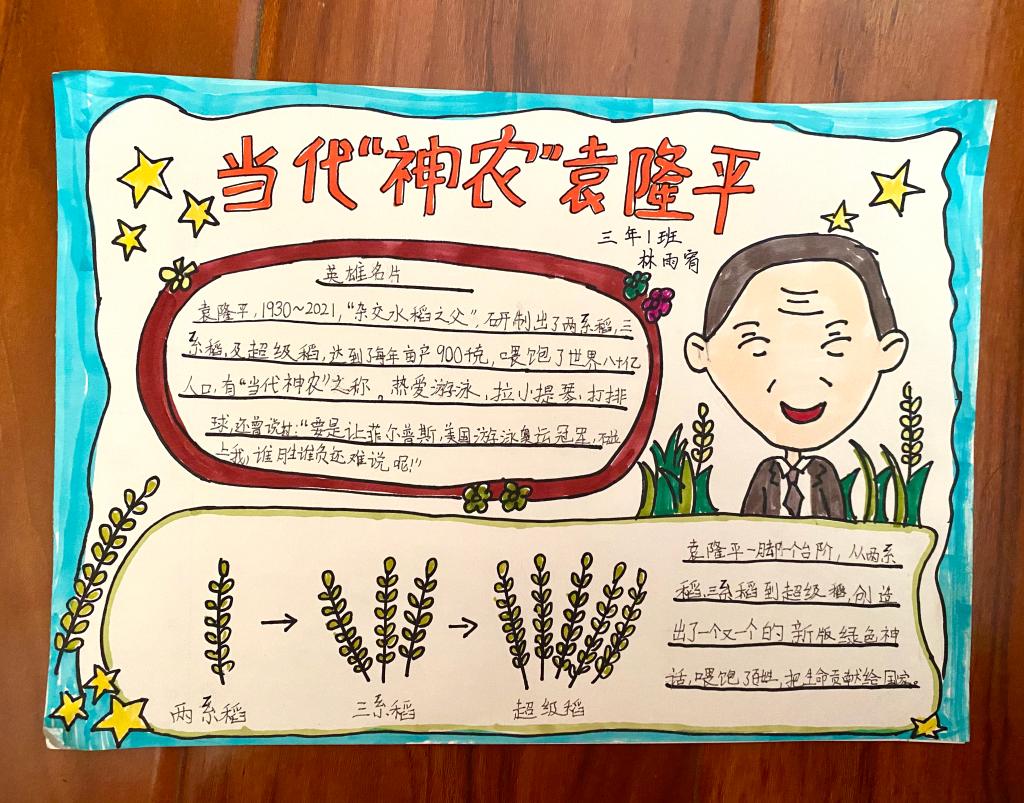 当代“神农”袁隆平
三年1班
林雨宵
英雄名片
袁隆平,1930~2021,“杂交水稻之父”,研制出了两系稻,三
系稻,及超级稻,达到了每年亩产900千克,喂饱了世界八十亿
人口,有“当代神农”之称。热爱游泳,拉小提琴,打排
球,还曾说过:“要是让菲尔普斯,美国游泳奥运冠军,不
上我,谁胜谁负还难说呢!”
袁隆平一脚一个台阶,从两系
稻,三系稻到超级稻,创造
出了一个又一个的新版绿色神
话,喂饱了百姓,把生命贡献给国家。
两系稻
三系稻
超级稻